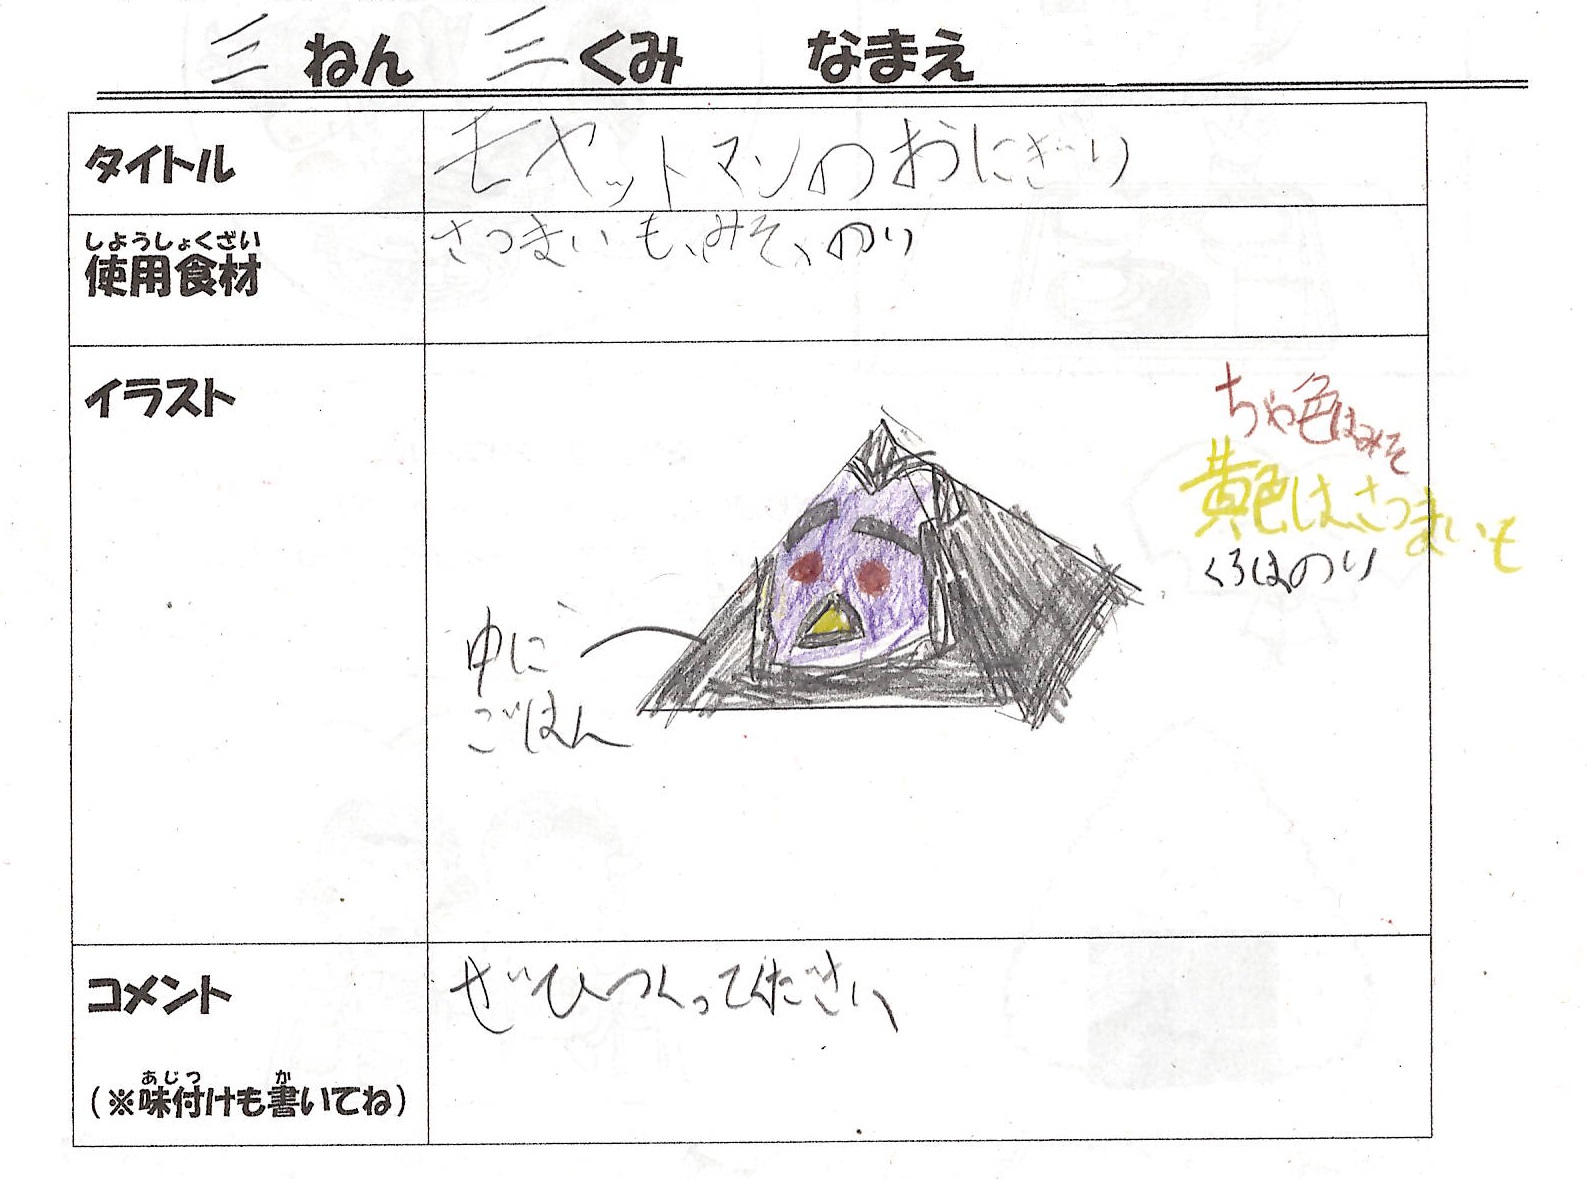 三ねん 三くみ なまえ
タイトル
モヤットマンのおにぎり
しようしょくざい
使用食材
さつまいも、みそ、のり
イラスト
ちゃ色はみそ
黄色はさつまいも
くろはのり
中に
ごはん
コメント
ぜひつくってください
あじつ か
(※味付けも書いてね)